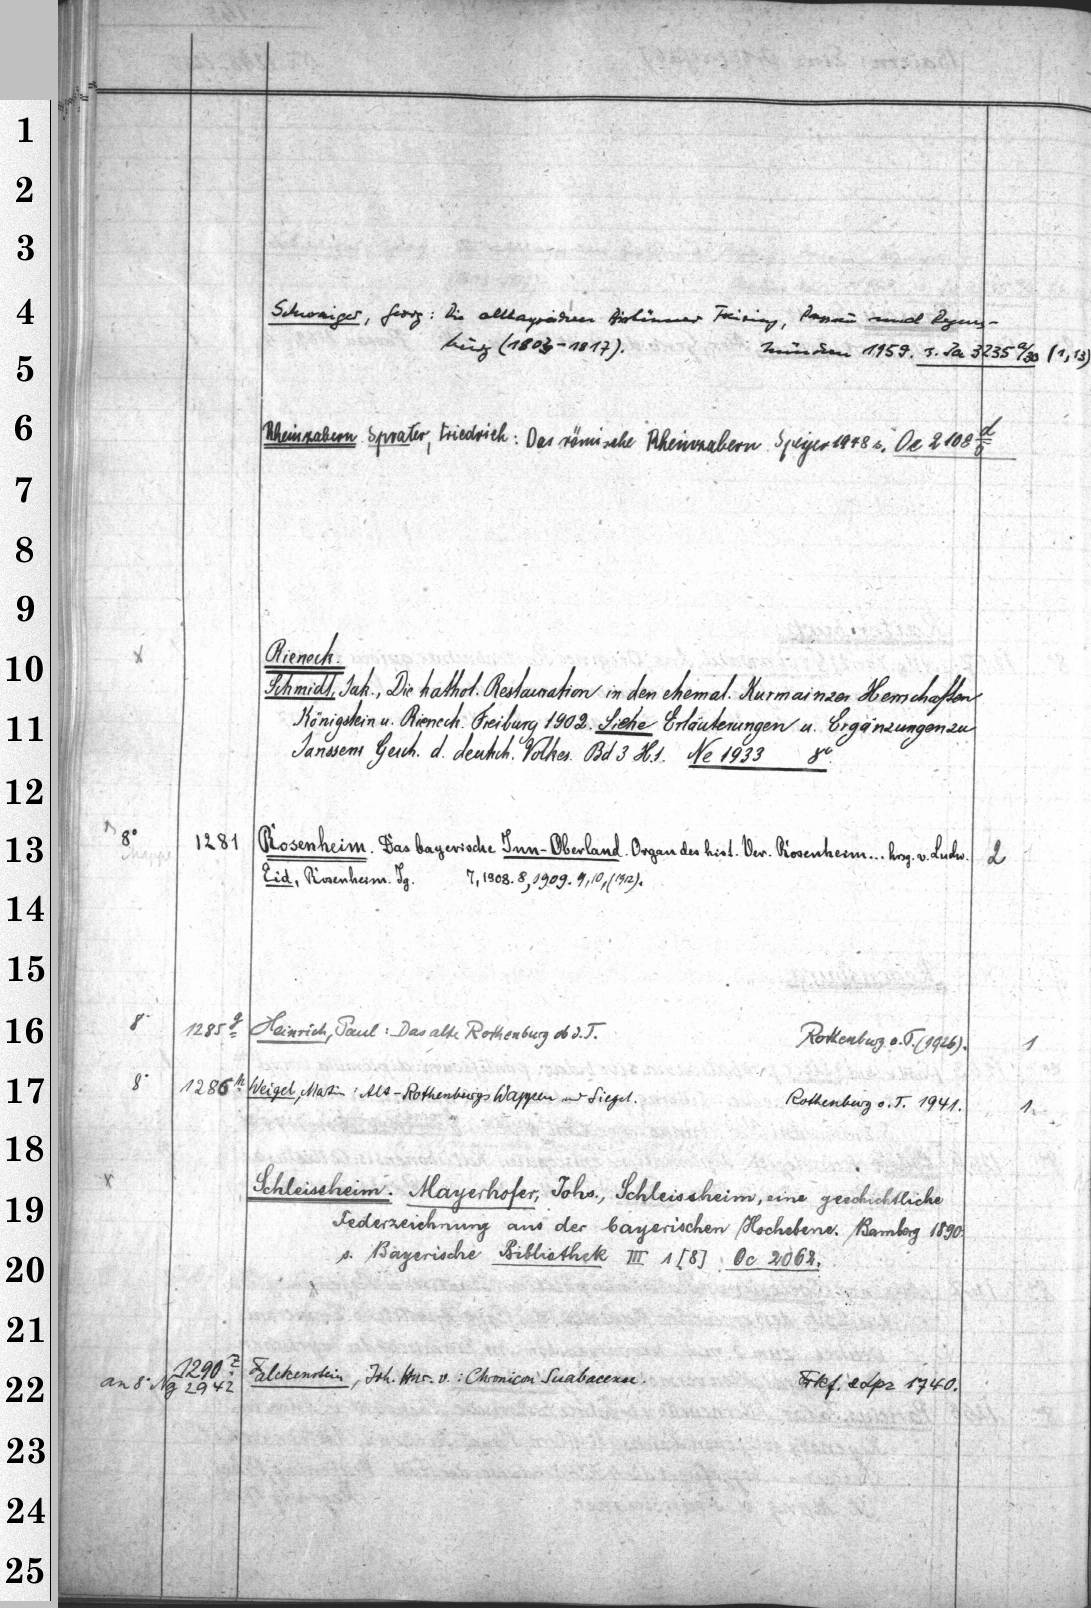 1
2
3
4
Schwaiger, Georg: Die altbayrischen Bistümer Freising, Passau und Regens-
burg (1803-1817). München 1959. s. Ja 3235 a/30 (1,13)
5
6
Rheinzabern Sprater, Friedrich: Das römische Rheinzabern Speyer 1948 s. Oc 2108 d
7
8
9
10
x Rieneck.
Schmidt, Jak., Die kathol. Restauration in den ehemal. Kurmainzer Herrschaften
11
Königstein u. Rieneck. Freiburg 1902. Siehe Erläuterungen u. Ergänzungen zu
Janssens Gesch. d. deutsch. Volkes. Bd 3 H.1. Ne 1933 8°
12
13
8° 1281 Rosenheim. Das bayerische Inn-Oberland. Organ des hist. Ver. Rosenheim... hrsg. v. Ludw. 2
Mappe Eid, Rosenheim. Jg. 7, 1908. 8, 1909. 9, 10, (1912).
14
15
16
8° 1285 g Heinrich, Paul: Das alte Rothenburg ob d. T. Rothenburg o. T. (1926). 1
17
8° 1286 n Weigel, Martin: Alt-Rothenburgs Wappen und Siegel. Rothenburg o. T. 1941. 1.
18
19
x Schleissheim. Mayerhofer, Johs., Schleissheim, eine geschichtliche
Federzeichnung aus der bayerischen Hochebene. Bamberg 1890.
20
s. Bayerische Bibliothek III 1 [8] Oc 2062.
21
22
an 8° Ng 2942 1290 z Falckenstein, Joh. Hnr. v.: Chronicon Suabacense. Frkf. & Lpz 1740.
23
24
25